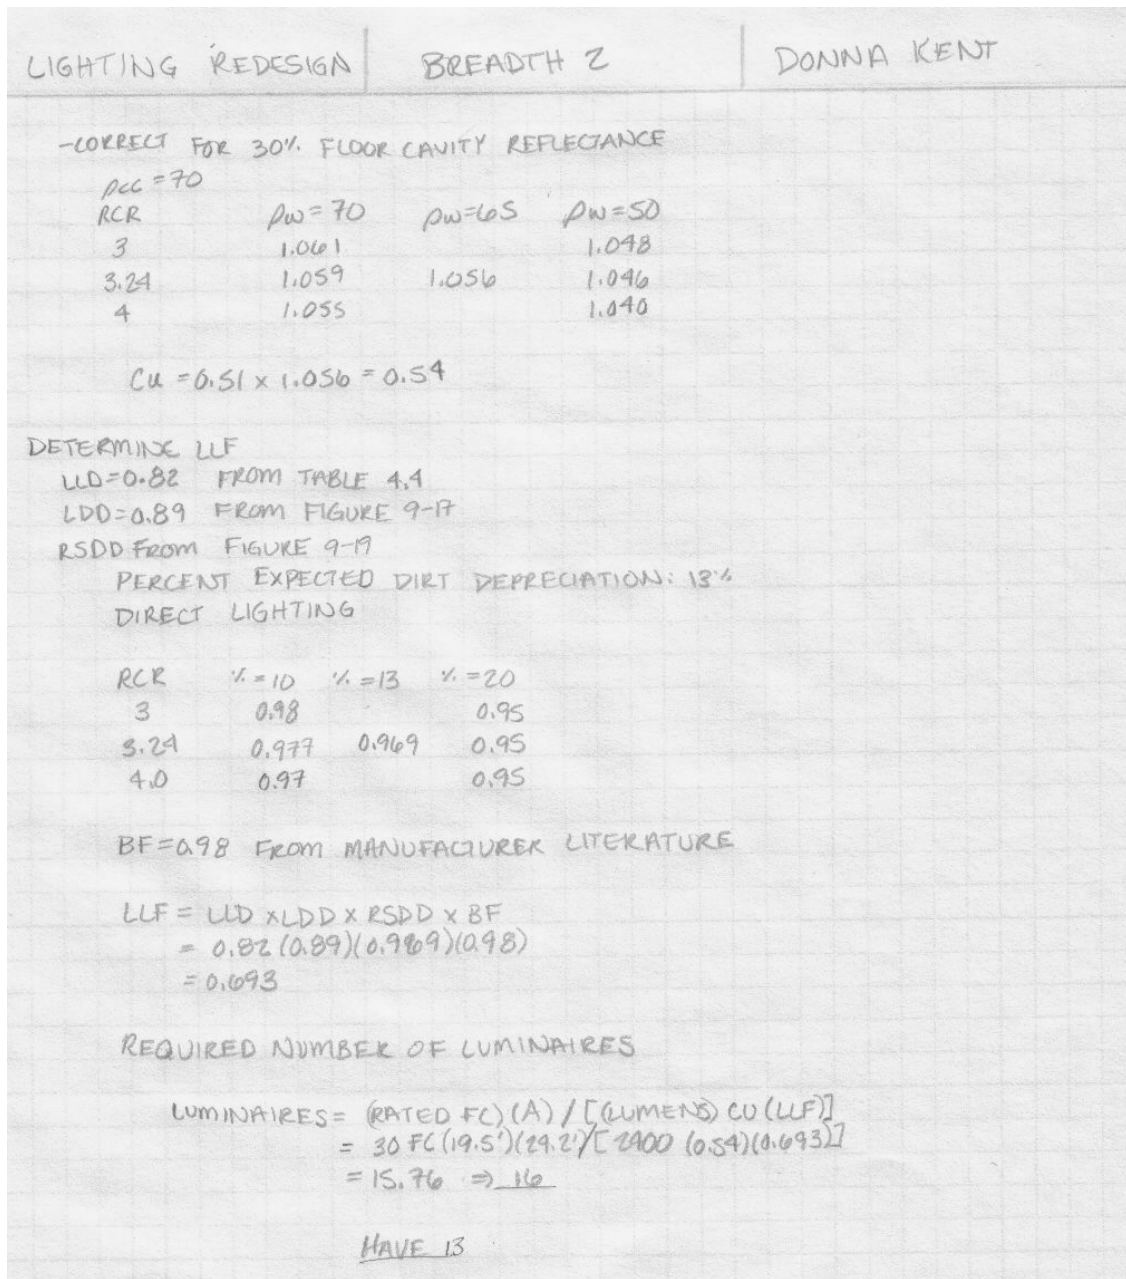 LIGHTING REDESIGN BREADTH 2 DONNA KENT
-CORRECT FOR 30% FLOOR CAVITY REFLECTANCE
ρcc = 70
RCR ρw = 70 ρw=65 ρw=50
3 1.061 1.048
3.24 1.059 1.056 1.046
4 1.055 1.040
CU = 0.51 x 1.056 = 0.54
DETERMINE LLF
LLD=0.82 FROM TABLE 4.4
LDD=0.89 FROM FIGURE 9-17
RSDD FROM FIGURE 9-19
PERCENT EXPECTED DIRT DEPRECIATION: 13%
DIRECT LIGHTING
RCR % = 10 % = 13 % = 20
3 0.98 0.95
3.24 0.977 0.969 0.95
4.0 0.97 0.95
BF=0.98 FROM MANUFACTURER LITERATURE
LLF = LLD x LDD x RSDD x BF
= 0.82 (0.89)(0.969)(0.98)
= 0.693
REQUIRED NUMBER OF LUMINAIRES
LUMINAIRES = (RATED FC)(A) / [(LUMENS) CU (LLF)]
= 30 FC (19.5')(24.2')/[2400 (0.54)(0.693)]
= 15.76 ⇒ 16
HAVE 13